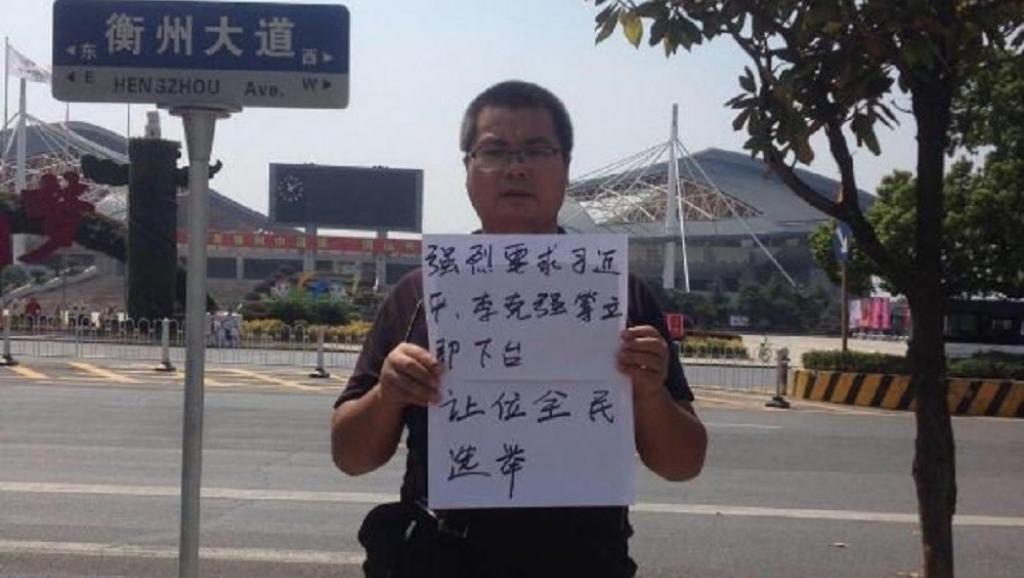 衡州大道
东 西
E HENGZHOU Ave. W
强烈要求习近
平、李克强等立
即下台
让位全民
选举